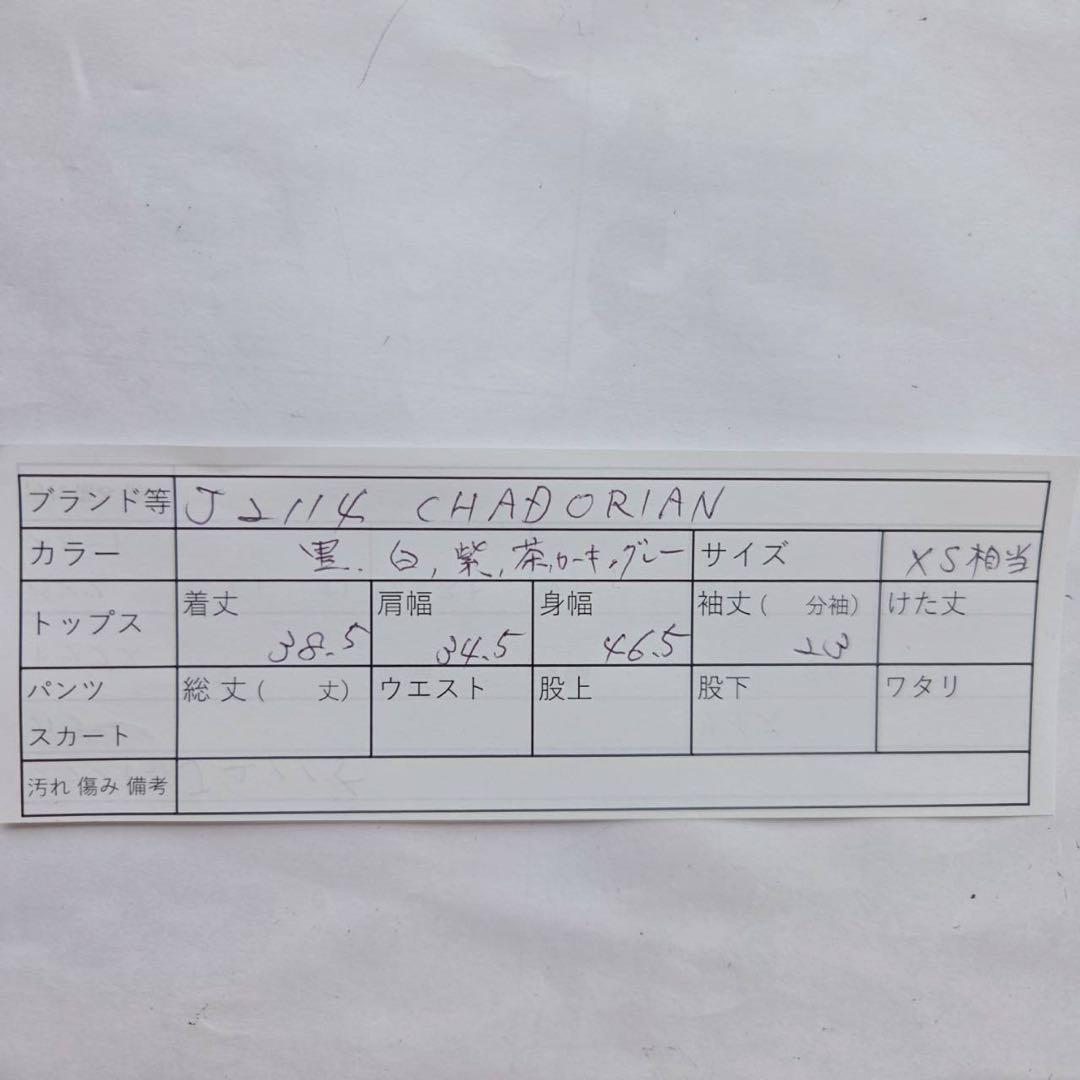 ブランド等 J2114 CHADORIAN
カラー 黒、白、紫、茶、カーキ、グレー サイズ XS相当
トップス 着丈 38.5 肩幅 34.5 身幅 46.5 袖丈( 分袖) 23 けた丈
パンツ スカート 総丈( 丈) ウエスト 股上 股下 ワタリ
汚れ 傷み 備考